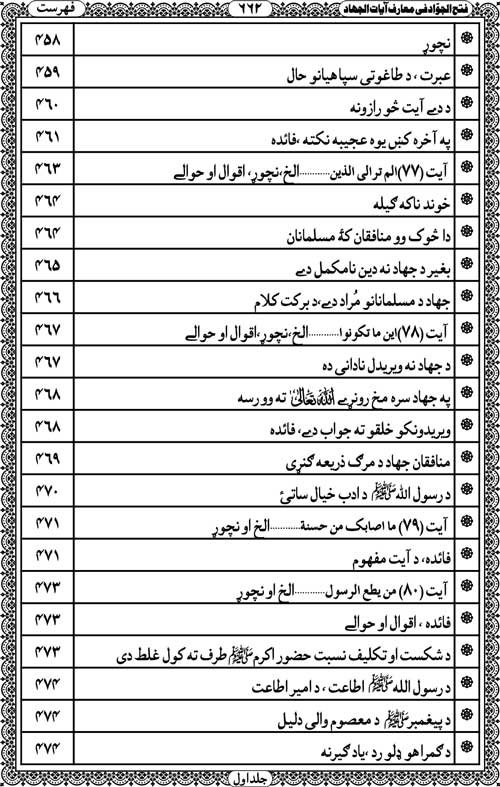 فتح الجوّاد فی معارف آیات الجهاد ۶۶۲ فهرست
نچوړ ۴۵۸
عبرت ، د طاغوتي سپاهیانو حال ۴۵۹
د دے آیت څو رازونه ۴۶۰
په آخره کښ یوه عجیبه نکته ،فائده ۴۶۱
آیت (۷۷)الم تر الی الذین............الخ،نچوړ، اقوال او حوالے ۴۶۳
خوند ناکه ګیله ۴۶۴
دا څوک وو منافقان کۀ مسلمانان ۴۶۴
بغیر د جهاد نه دین نامکمل دے ۴۶۵
جهاد د مسلمانانو مُراد دے،د برکت کلام ۴۶۶
آیت (۷۸)این ما تکونوا............الخ،نچوړ،اقوال او حوالے ۴۶۷
د جهاد نه ویریدل نادانی ده ۴۶۷
په جهاد سره مخ رونړے اللہ تعالیٰ ته وورسه ۴۶۸
ویریدونکو خلقو ته جواب دے، فائده ۴۶۸
منافقان جهاد د مرګ ذریعه ګنړی ۴۶۹
د رسول الله ﷺ د ادب خیال ساتئ ۴۷۰
آیت (۷۹) ما اصابک من حسنة............الخ او نچوړ ۴۷۱
فائده، د آیت مفهوم ۴۷۱
آیت (۸۰) من یطع الرسول............الخ او نچوړ ۴۷۳
فائده ، اقوال او حوالے ۴۷۳
د شکست او تکلیف نسبت حضور اکرم ﷺ طرف ته کول غلط دی ۴۷۳
د رسول الله ﷺ اطاعت ، د امیر اطاعت ۴۷۴
د پیغمبر ﷺ د معصوم والی دلیل ۴۷۴
د ګمراهو ډلو رد ،یاد ګیرنه ۴۷۴
جلد اول